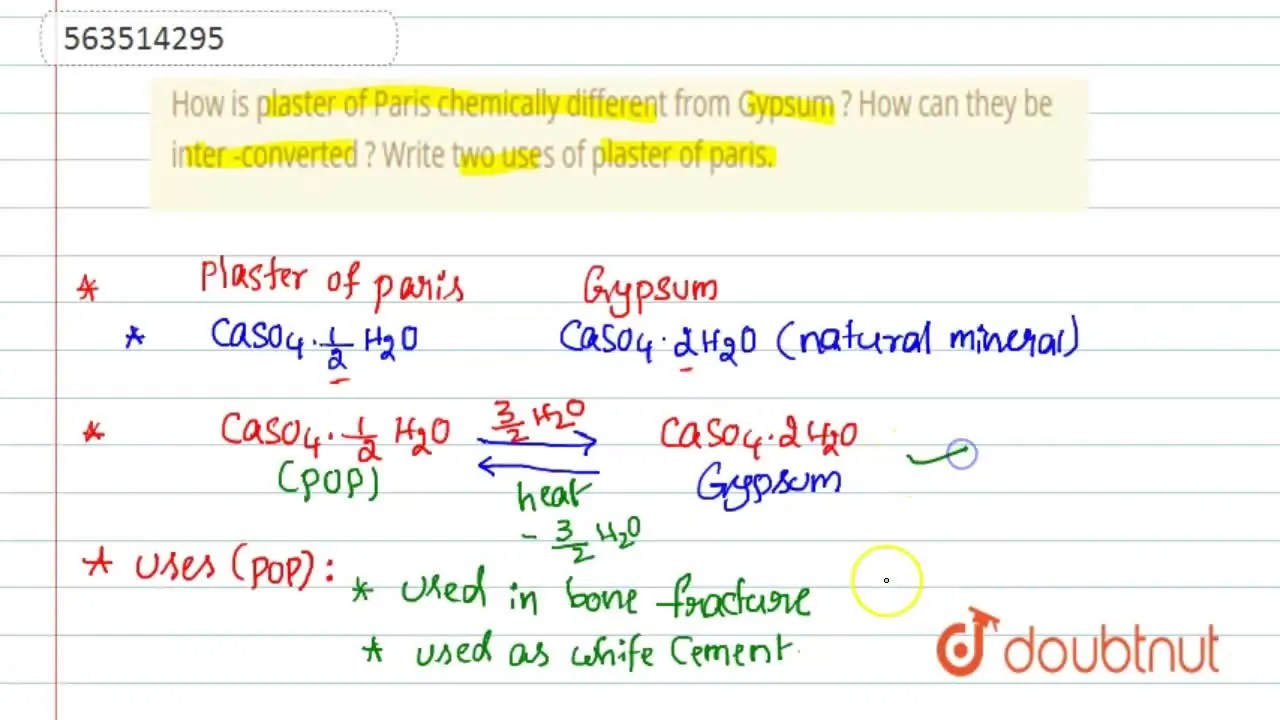 563514295
How is plaster of Paris chemically different from Gypsum ? How can they be
inter -converted ? Write two uses of plaster of paris.
* Plaster of paris Gypsum
* CaSO4·1/2 H2O CaSO4·2H2O (natural mineral)
* CaSO4·1/2 H2O 3/2 H2O CaSO4·2H2O
(POP) heat Gypsum
- 3/2 H2O
* uses (POP) :
* used in bone fracture
* used as white cement.
doubtnut